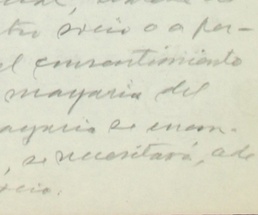 tro socio o a per-
el consentimiento
mayaria del
ayaria se encon-
, se necesitará, ade
socio.